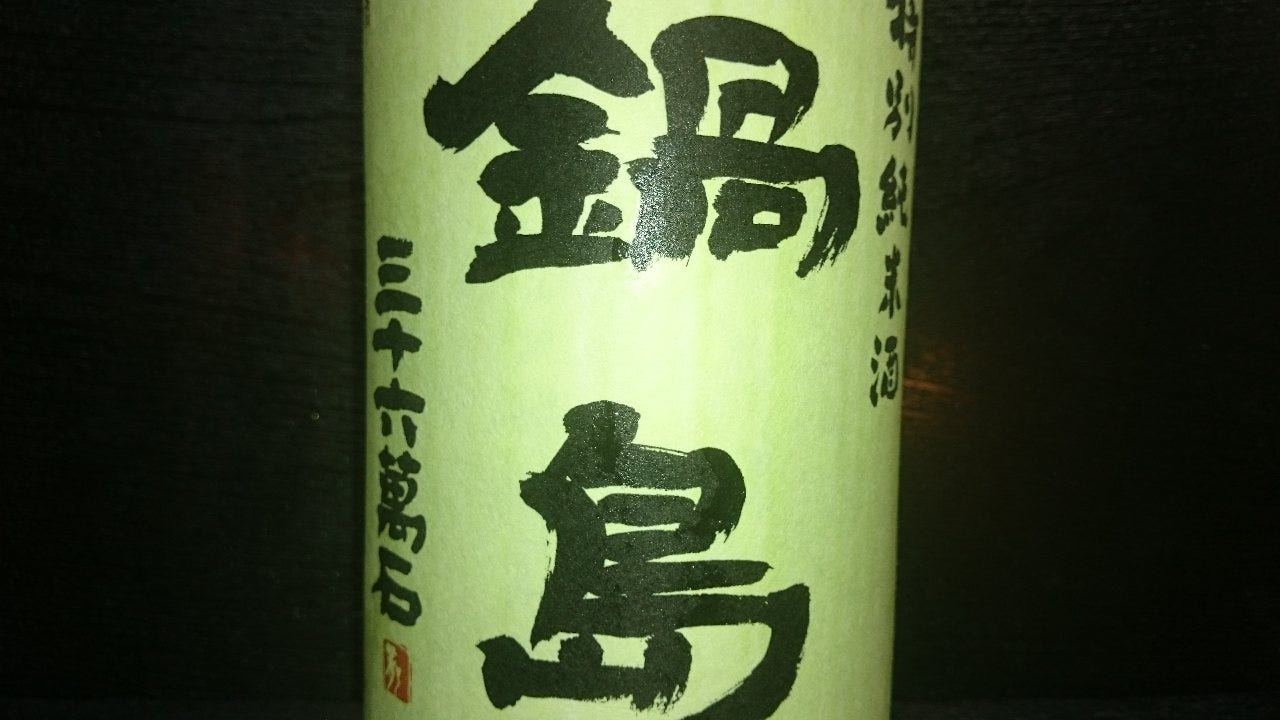 特別純米酒
鍋島
三十六萬石